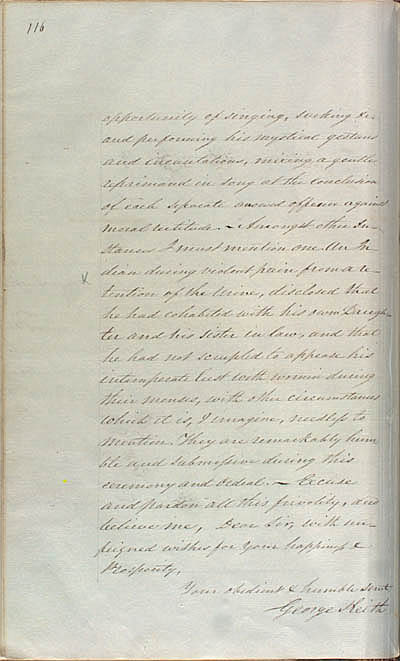 116
opportunity of singing, sucking &c.
and performing his mystical gestures
and incantations, mixing a gentle
reprimand in song at the conclusion
of each separate avowed offence against
moral rectitude. – Amongst other In-
stances I must mention one. An In-
dian during violent pain from a re-
tention of the Urine, disclosed that
he had cohabited with his own Daugh-
ter and his sister in law, and that
he had not scrupled to appease his
intemperate lust with women during
their menses, with other circumstances
which it is, I imagine, needless to
mention. They are remarkably hum
ble and submissive during this
ceremony and Ordeal. – Excuse
and pardon all this frivolity, and
believe me, Dear Sir, with un-
feigned wishes for Your happiness &
Prosperity,
Your obedient & humble Servt
George Keith